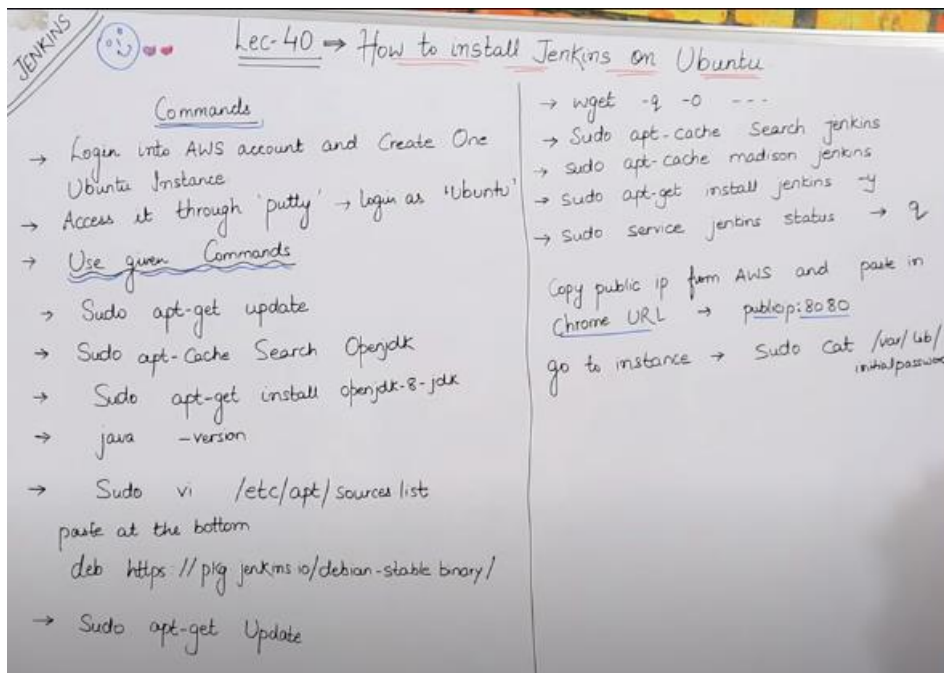 JENKINS
Lec-40 ⇒ How to install Jenkins on Ubuntu
Commands
→ Login into AWS account and Create One
Ubuntu Instance
→ Access it through 'putty' → login as 'Ubuntu'
→ Use given Commands
→ Sudo apt-get update
→ Sudo apt-Cache Search Openjdk
→ Sudo apt-get install openjdk-8-jdk
→ java -version
→ Sudo vi /etc/apt/sources list
paste at the bottom
deb https://pkg jenkins io/debian-stable binary/
→ Sudo apt-get Update
→ wget -q -O ---
→ Sudo apt-cache Search jenkins
→ sudo apt-cache madison jenkins
→ Sudo apt-get install jenkins -y
→ Sudo service jenkins status → q
Copy public ip from AWS and paste in
Chrome URL → publicip:8080
go to instance → Sudo Cat /var/lib/